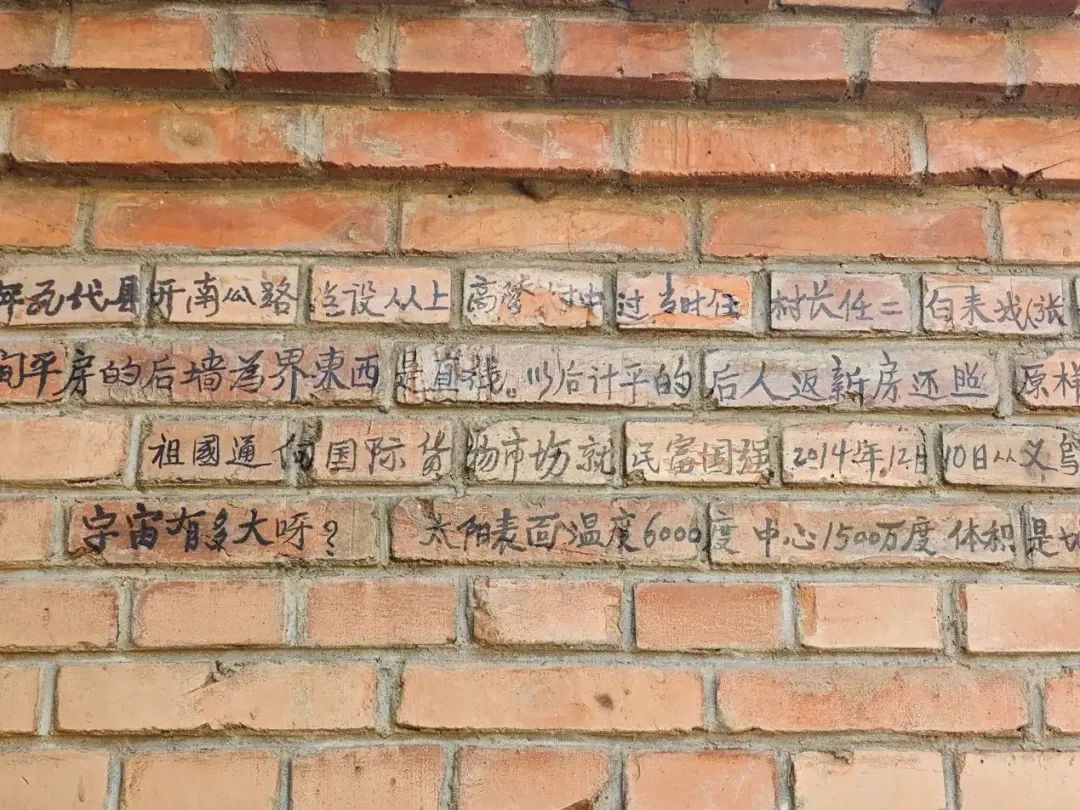 年瓦代县开南公路 当设从上 高 村中 过 当时任 村长任二白 来 张
间平房的后墙為界東西是直线。以后计平的后人返新房还照原样
祖國通向国际货物市场就民富国强 2014年12月10日从义
宇宙有多大呀? 太阳表面温度6000度 中心1500万度 体积是